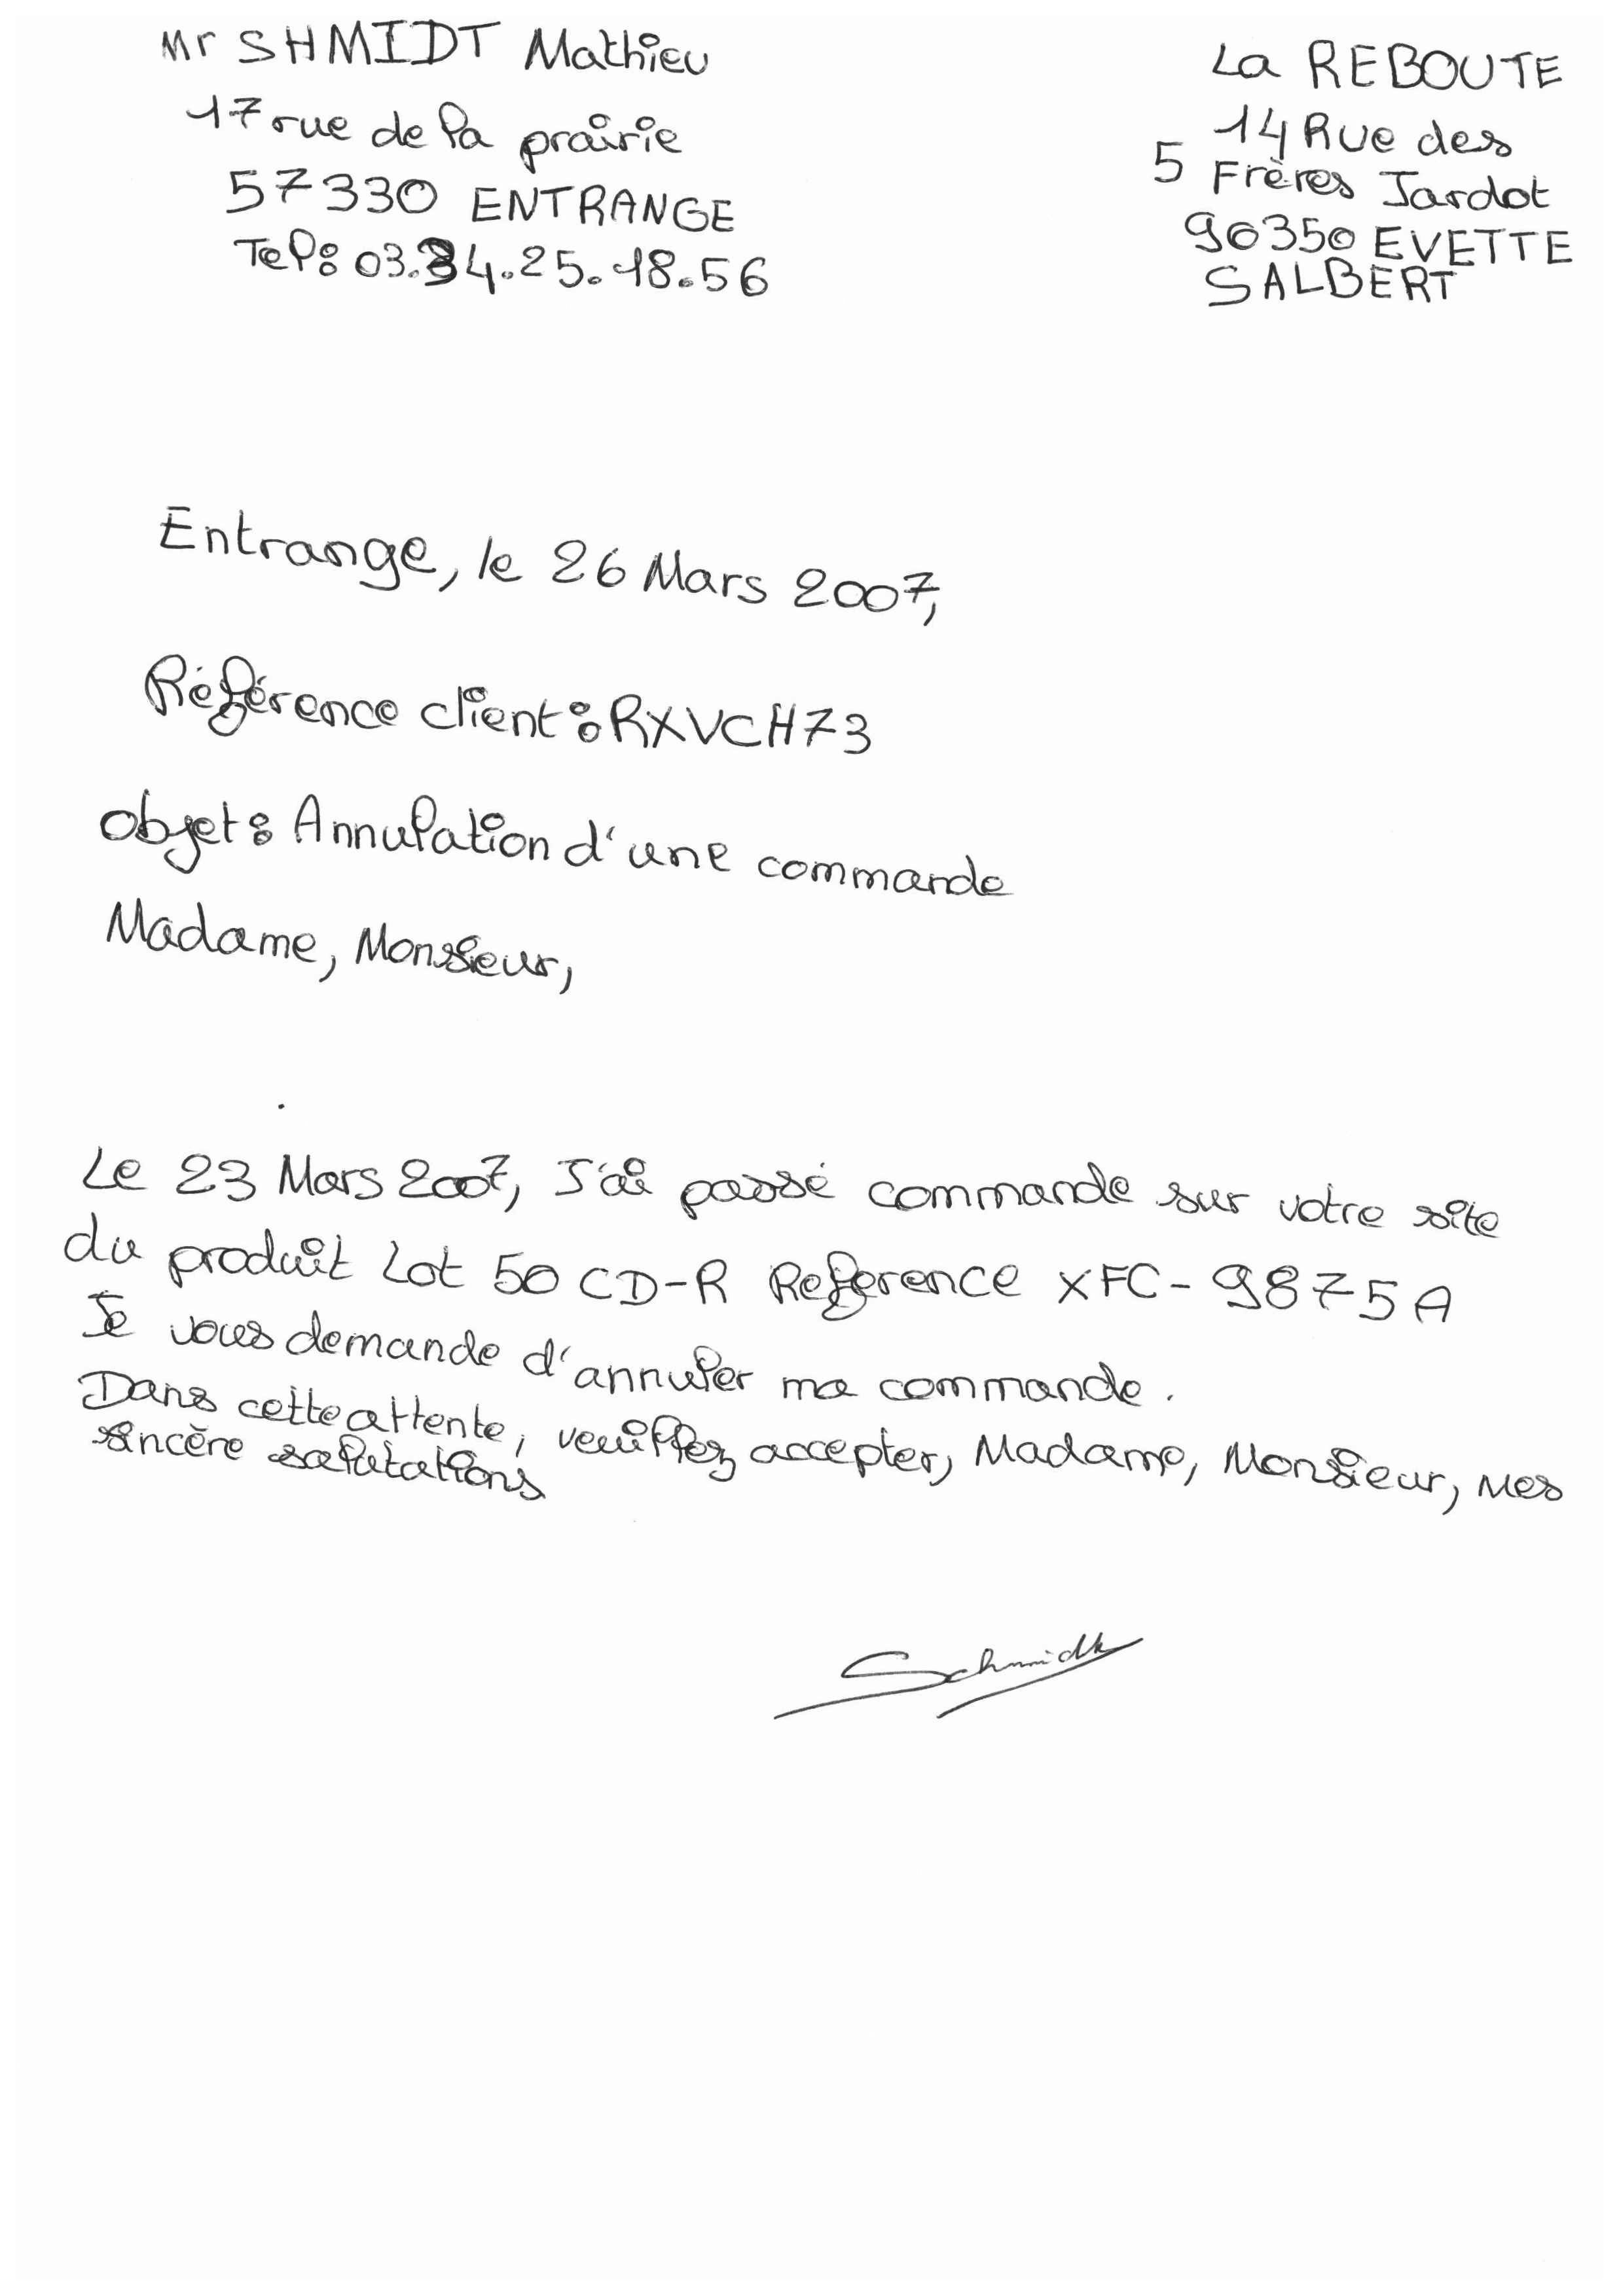 Mr SHMIDT Mathieu
17 rue de la prairie
57330 ENTRANGE
Tel: 03.84.25.18.56
La REBOUTE
14 Rue des
5 Frères Jardot
90350 EVETTE
SALBERT
Entrange, le 26 Mars 2007,
Référence client: RXVCH73
Objet: Annulation d'une commande
Madame, Monsieur,
Le 23 Mars 2007, J'ai passé commande sur votre site
du produit Lot 50 CD-R Reference XFC-9875A
Je vous demande d'annuler ma commande.
Dans cette attente, veuillez accepter, Madame, Monsieur, mes
sincère salutations
Schmidt